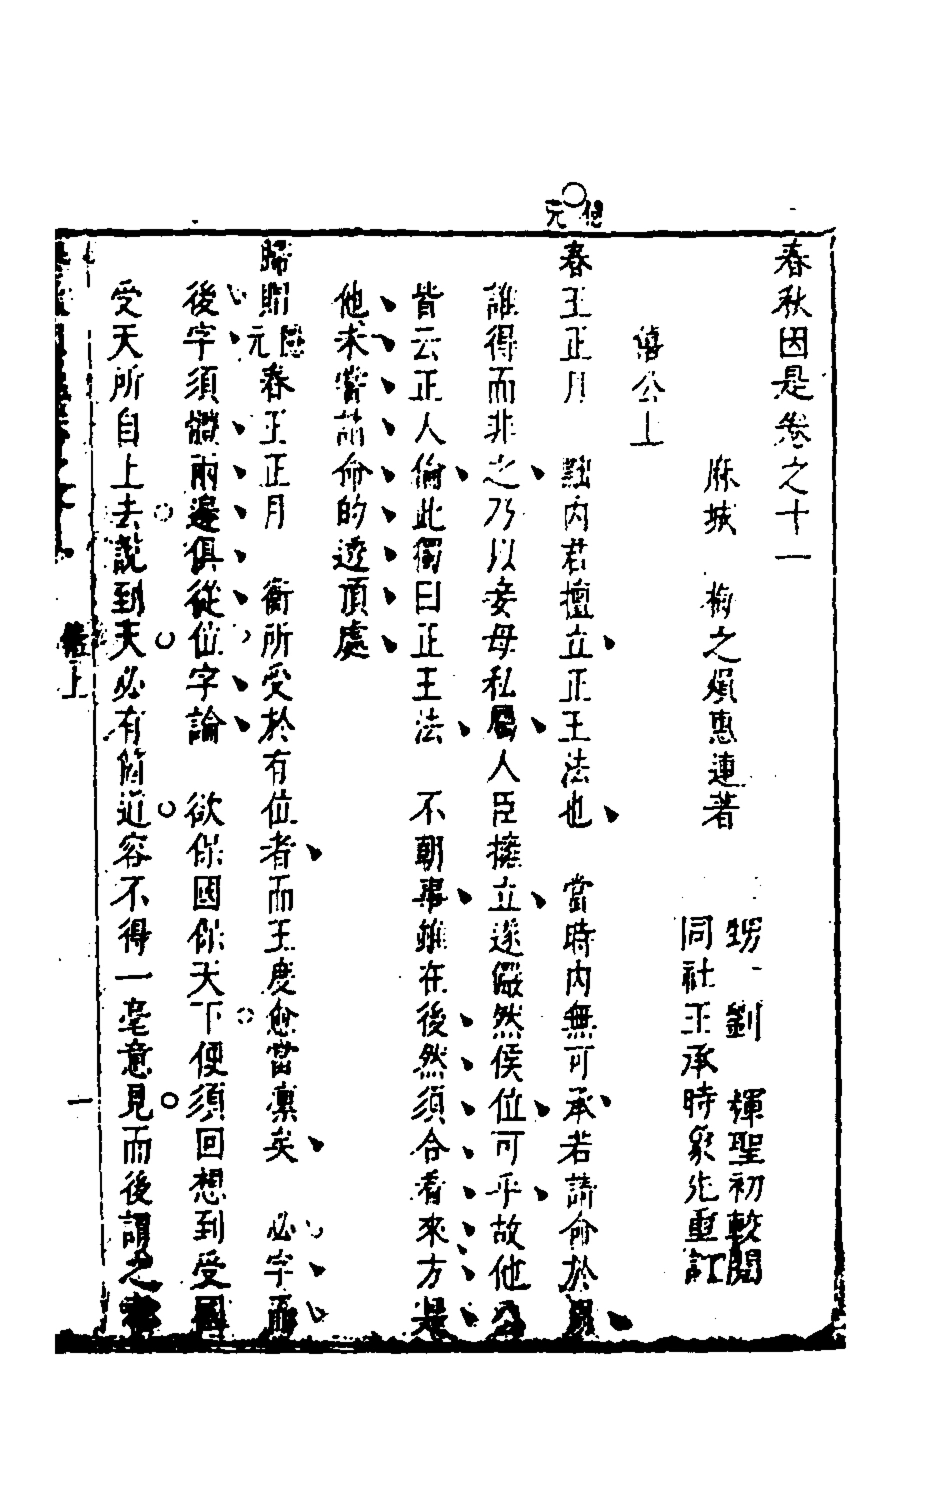 春秋因是卷之十一
麻城 梅之熉惠連著
甥 劉 輝聖初較閱
同社王承時象先重訂
僖公上
僖元
春王正月 黜内君擅立正王法也 當時内無可承若請命於
誰得而非之乃以妾母私屬人臣擁立遂儼然侯位可乎故他公
皆云正人倫此獨曰正王法 不朝事雖在後然須合看來方是
他未嘗請命的透頂處
歸賵 隱元 春王正月 衡所受於有位者而王度愈當凛矣 必字而
後字須體兩邊俱從位字論 欲保國保天下便須回想到受國
受天所自上去說到天必有個近容不得一毫意見而後謂之
僖上
一